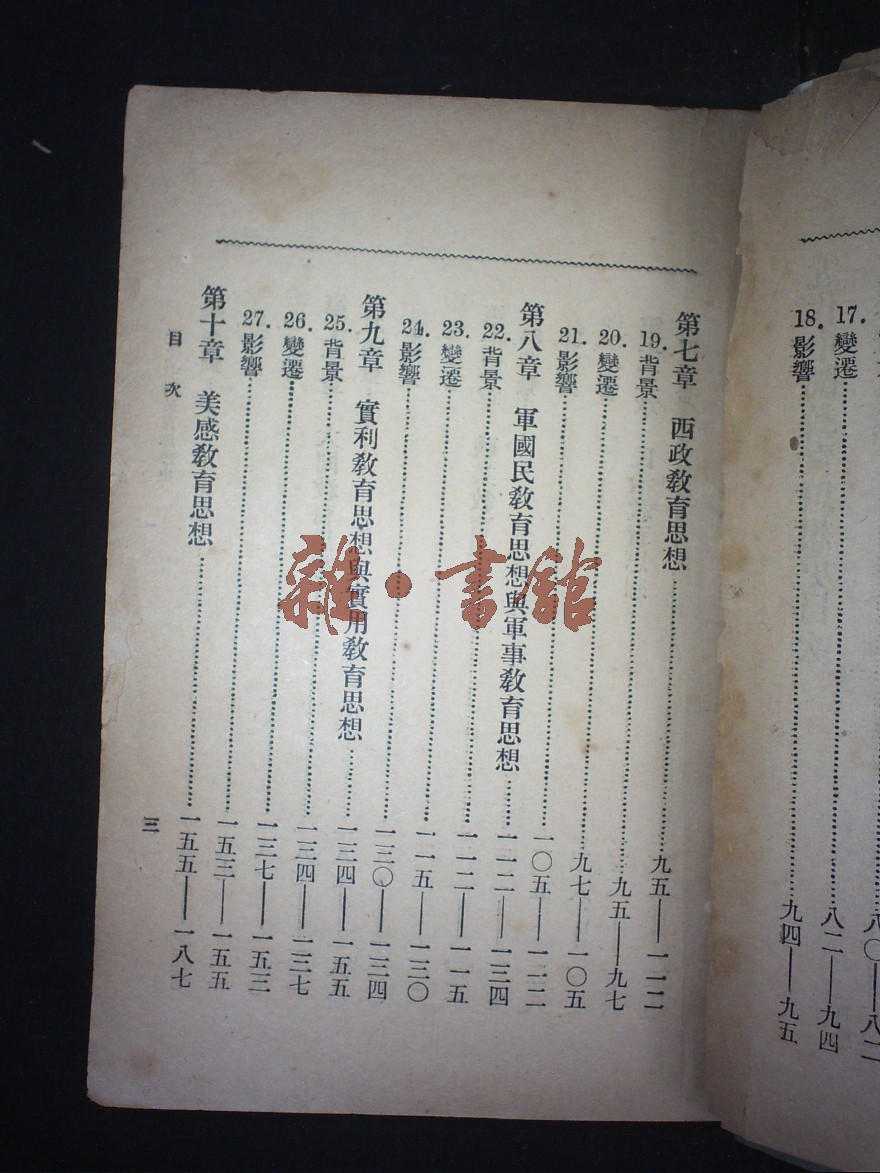 八〇——八二
17. 變遷……八二——九四
18. 影響……九四——九五
第七章　西政敎育思想……九五——一一二
19. 背景……九五——九七
20. 變遷……九七——一〇五
21. 影響……一〇五——一一二
第八章　軍國民敎育思想與軍事敎育思想……一一二——一三四
22. 背景……一一二——一一五
23. 變遷……一一五——一三〇
24. 影響……一三〇——一三四
第九章　實利敎育思想與實用敎育思想……一三四——一五五
25. 背景……一三四——一三七
26. 變遷……一三七——一五三
27. 影響……一五三——一五五
第十章　美感敎育思想……一五五——一八七
目次
三
雜·書館